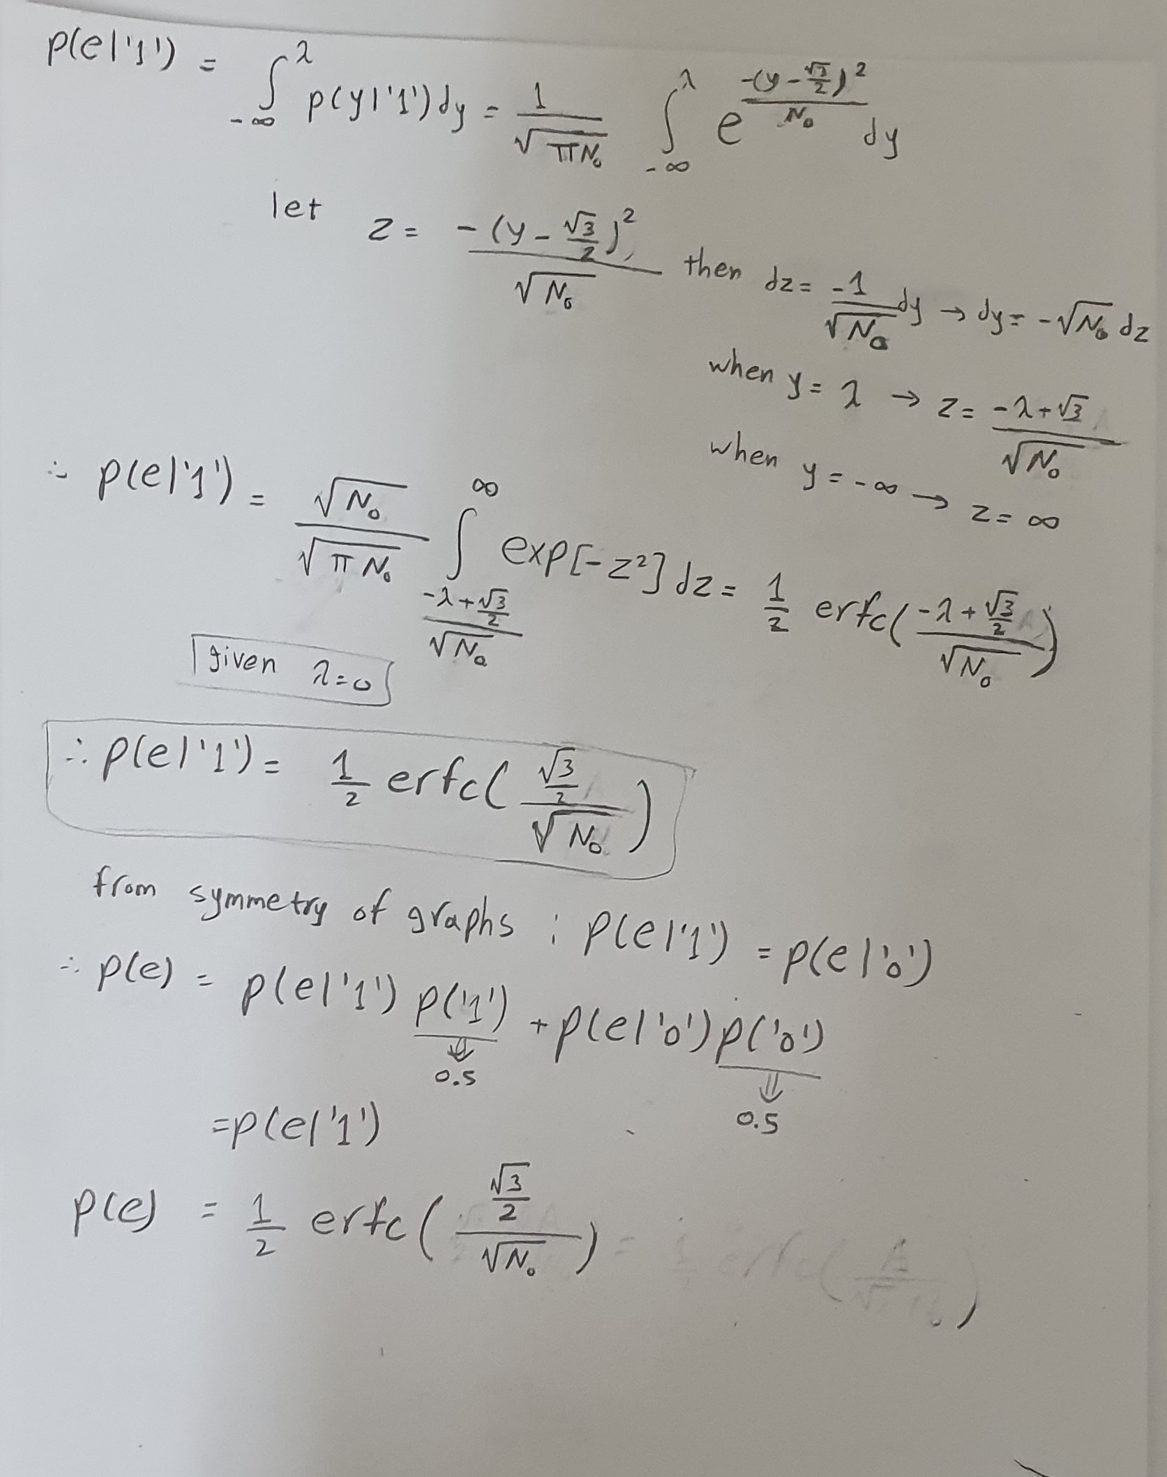 p(e|'1') = ∫_{-∞}^{λ} p(y|'1') dy = 1/√(πN₀) ∫_{-∞}^{λ} e^{-(y-√3/2)²/N₀} dy
let z = -(y-√3/2)²/√N₀ then dz = -1/√N₀ dy → dy = -√N₀ dz
when y = λ → z = (-λ+√3)/√N₀
when y = -∞ → z = ∞
∴ p(e|'1') = √N₀/√(πN₀) ∫_{(-λ+√3/2)/√N₀}^{∞} exp[-z²] dz = 1/2 erfc((-λ+√3/2)/√N₀)
given λ=0
∴ p(e|'1') = 1/2 erfc((√3/2)/√N₀)
from symmetry of graphs : p(e|'1') = p(e|'0')
∴ p(e) = p(e|'1') p('1') + p(e|'0') p('0')
⇓ ⇓
0.5 0.5
= p(e|'1')
p(e) = 1/2 erfc((√3/2)/√N₀)